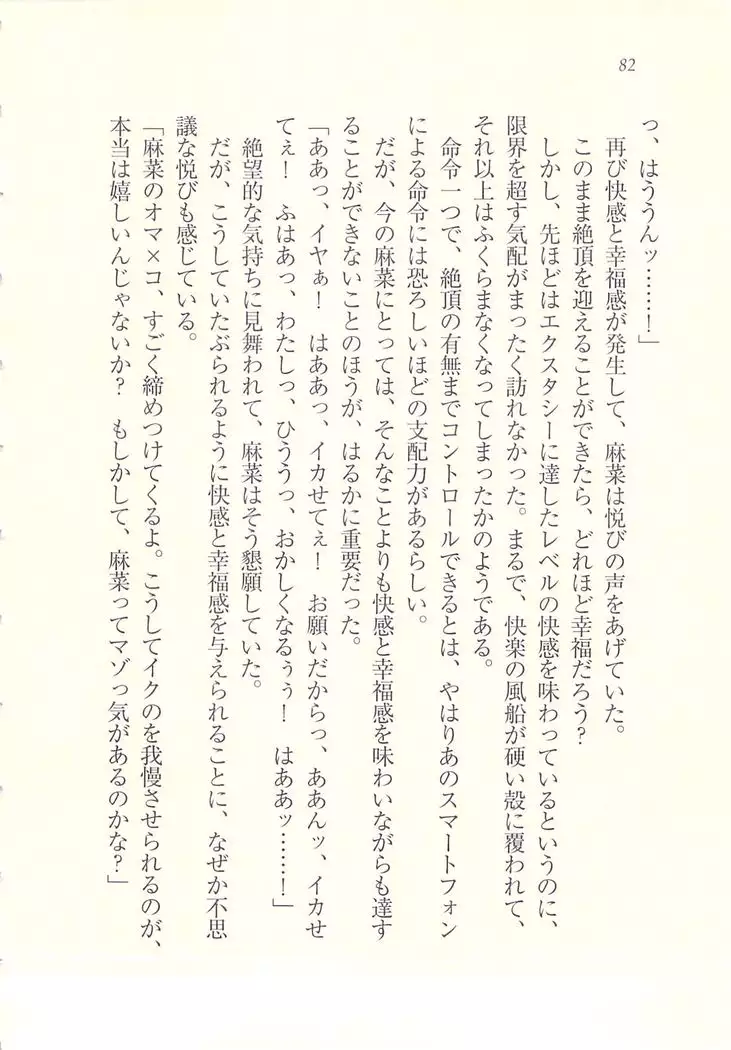 82
っ、はううんッ……！」
　再び快感と幸福感が発生して、麻菜は悦びの声をあげていた。
　このまま絶頂を迎えることができたら、どれほど幸福だろう？
　しかし、先ほどはエクスタシーに達したレベルの快感を味わっているというのに、
限界を超す気配がまったく訪れなかった。まるで、快楽の風船が硬い殻に覆われて、
それ以上はふくらまなくなってしまったかのようである。
　命令一つで、絶頂の有無までコントロールできるとは、やはりあのスマートフォン
による命令には恐ろしいほどの支配力があるらしい。
　だが、今の麻菜にとっては、そんなことよりも快感と幸福感を味わいながらも達す
ることができないことのほうが、はるかに重要だった。
「ああっ、イヤぁ！　はああっ、イカせてぇ！　お願いだからっ、ああんッ、イカせ
てぇ！　ふはあっ、わたしっ、ひううっ、おかしくなるぅぅ！　はああッ……！」
　絶望的な気持ちに見舞われて、麻菜はそう懇願していた。
　だが、こうしていたぶられるように快感と幸福感を与えられることに、なぜか不思
議な悦びも感じている。
「麻菜のオマ×コ、すごく締めつけてくるよ。こうしてイクのを我慢させられるのが、
本当は嬉しいんじゃないか？　もしかして、麻菜ってマゾっ気があるのかな？」